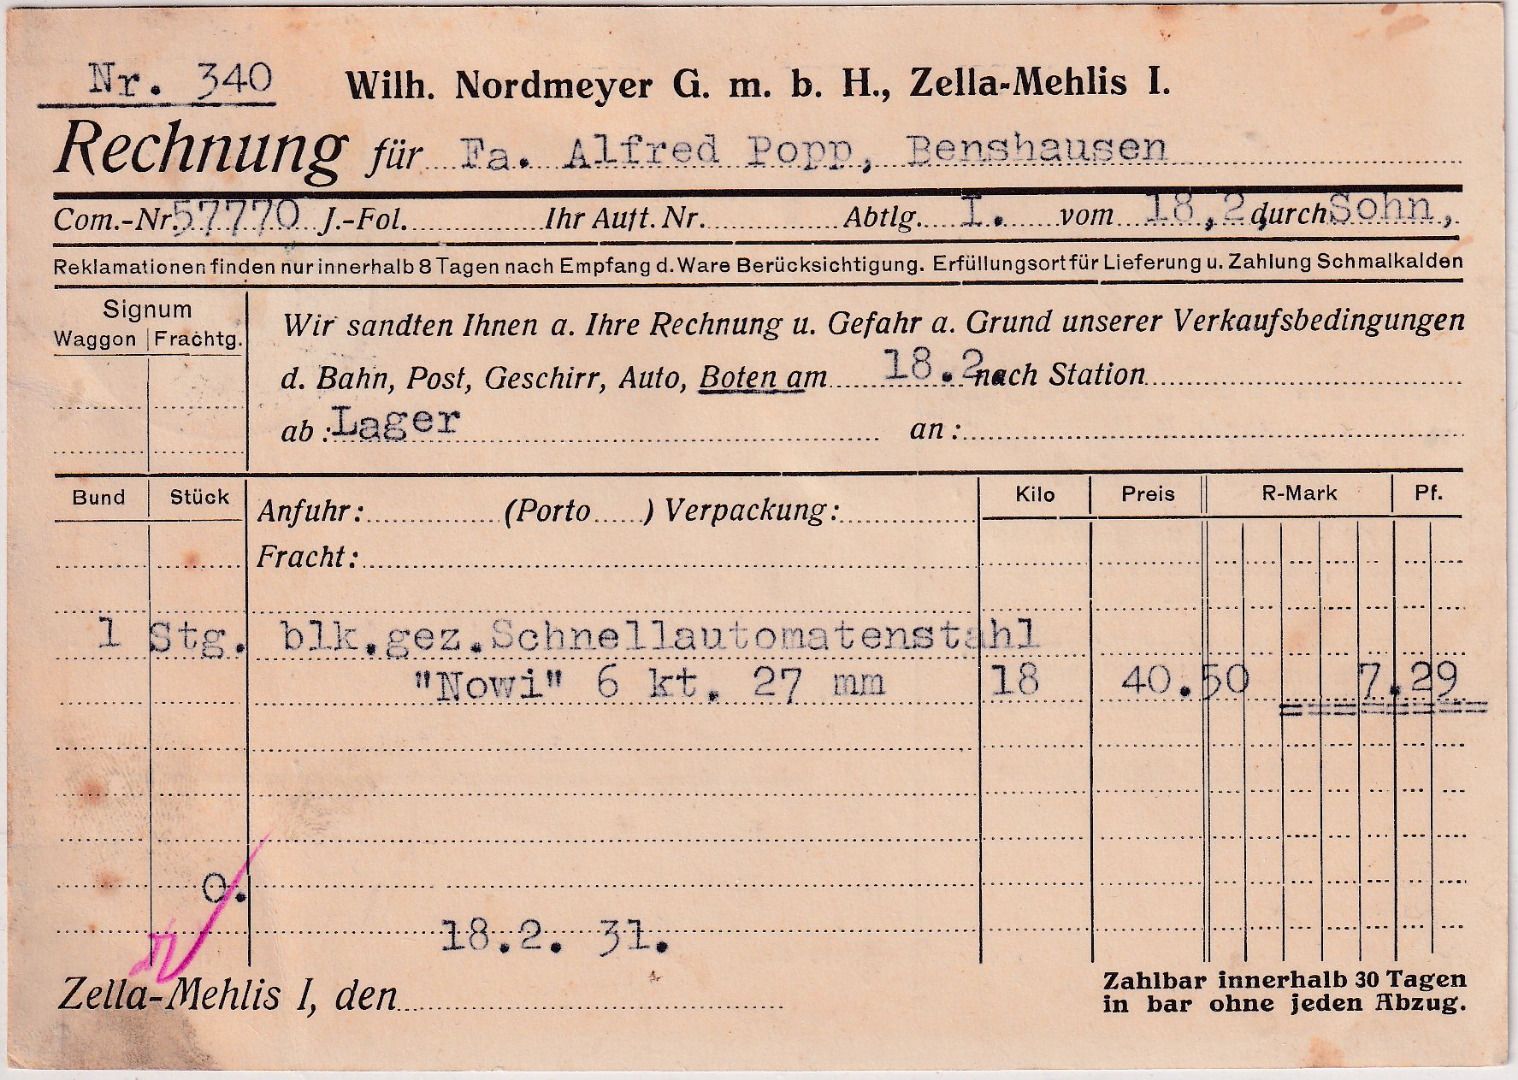 Nr. 340 Wilh. Nordmeyer G. m. b. H., Zella-Mehlis I.
Rechnung für Fa. Alfred Popp, Benshausen
Com.-Nr. 57770 J.-Fol. Ihr Auft. Nr. Abtlg. I. vom 18,2, durch Sohn,
Reklamationen finden nur innerhalb 8 Tagen nach Empfang d. Ware Berücksichtigung. Erfüllungsort für Lieferung u. Zahlung Schmalkalden
Signum
Waggon Frachtg.
Wir sandten Ihnen a. Ihre Rechnung u. Gefahr a. Grund unserer Verkaufsbedingungen
d. Bahn, Post, Geschirr, Auto, Boten am 18.2. nach Station
ab: Lager an:
Bund Stück Anfuhr: (Porto ) Verpackung: Kilo Preis R-Mark Pf.
Fracht:
1 Stg. blk.gez.Schnellautomatenstahl
"Nowi" 6 kt. 27 mm 18 40.50 7.29
O.
18.2. 31.
Zella-Mehlis I, den
Zahlbar innerhalb 30 Tagen
in bar ohne jeden Abzug.